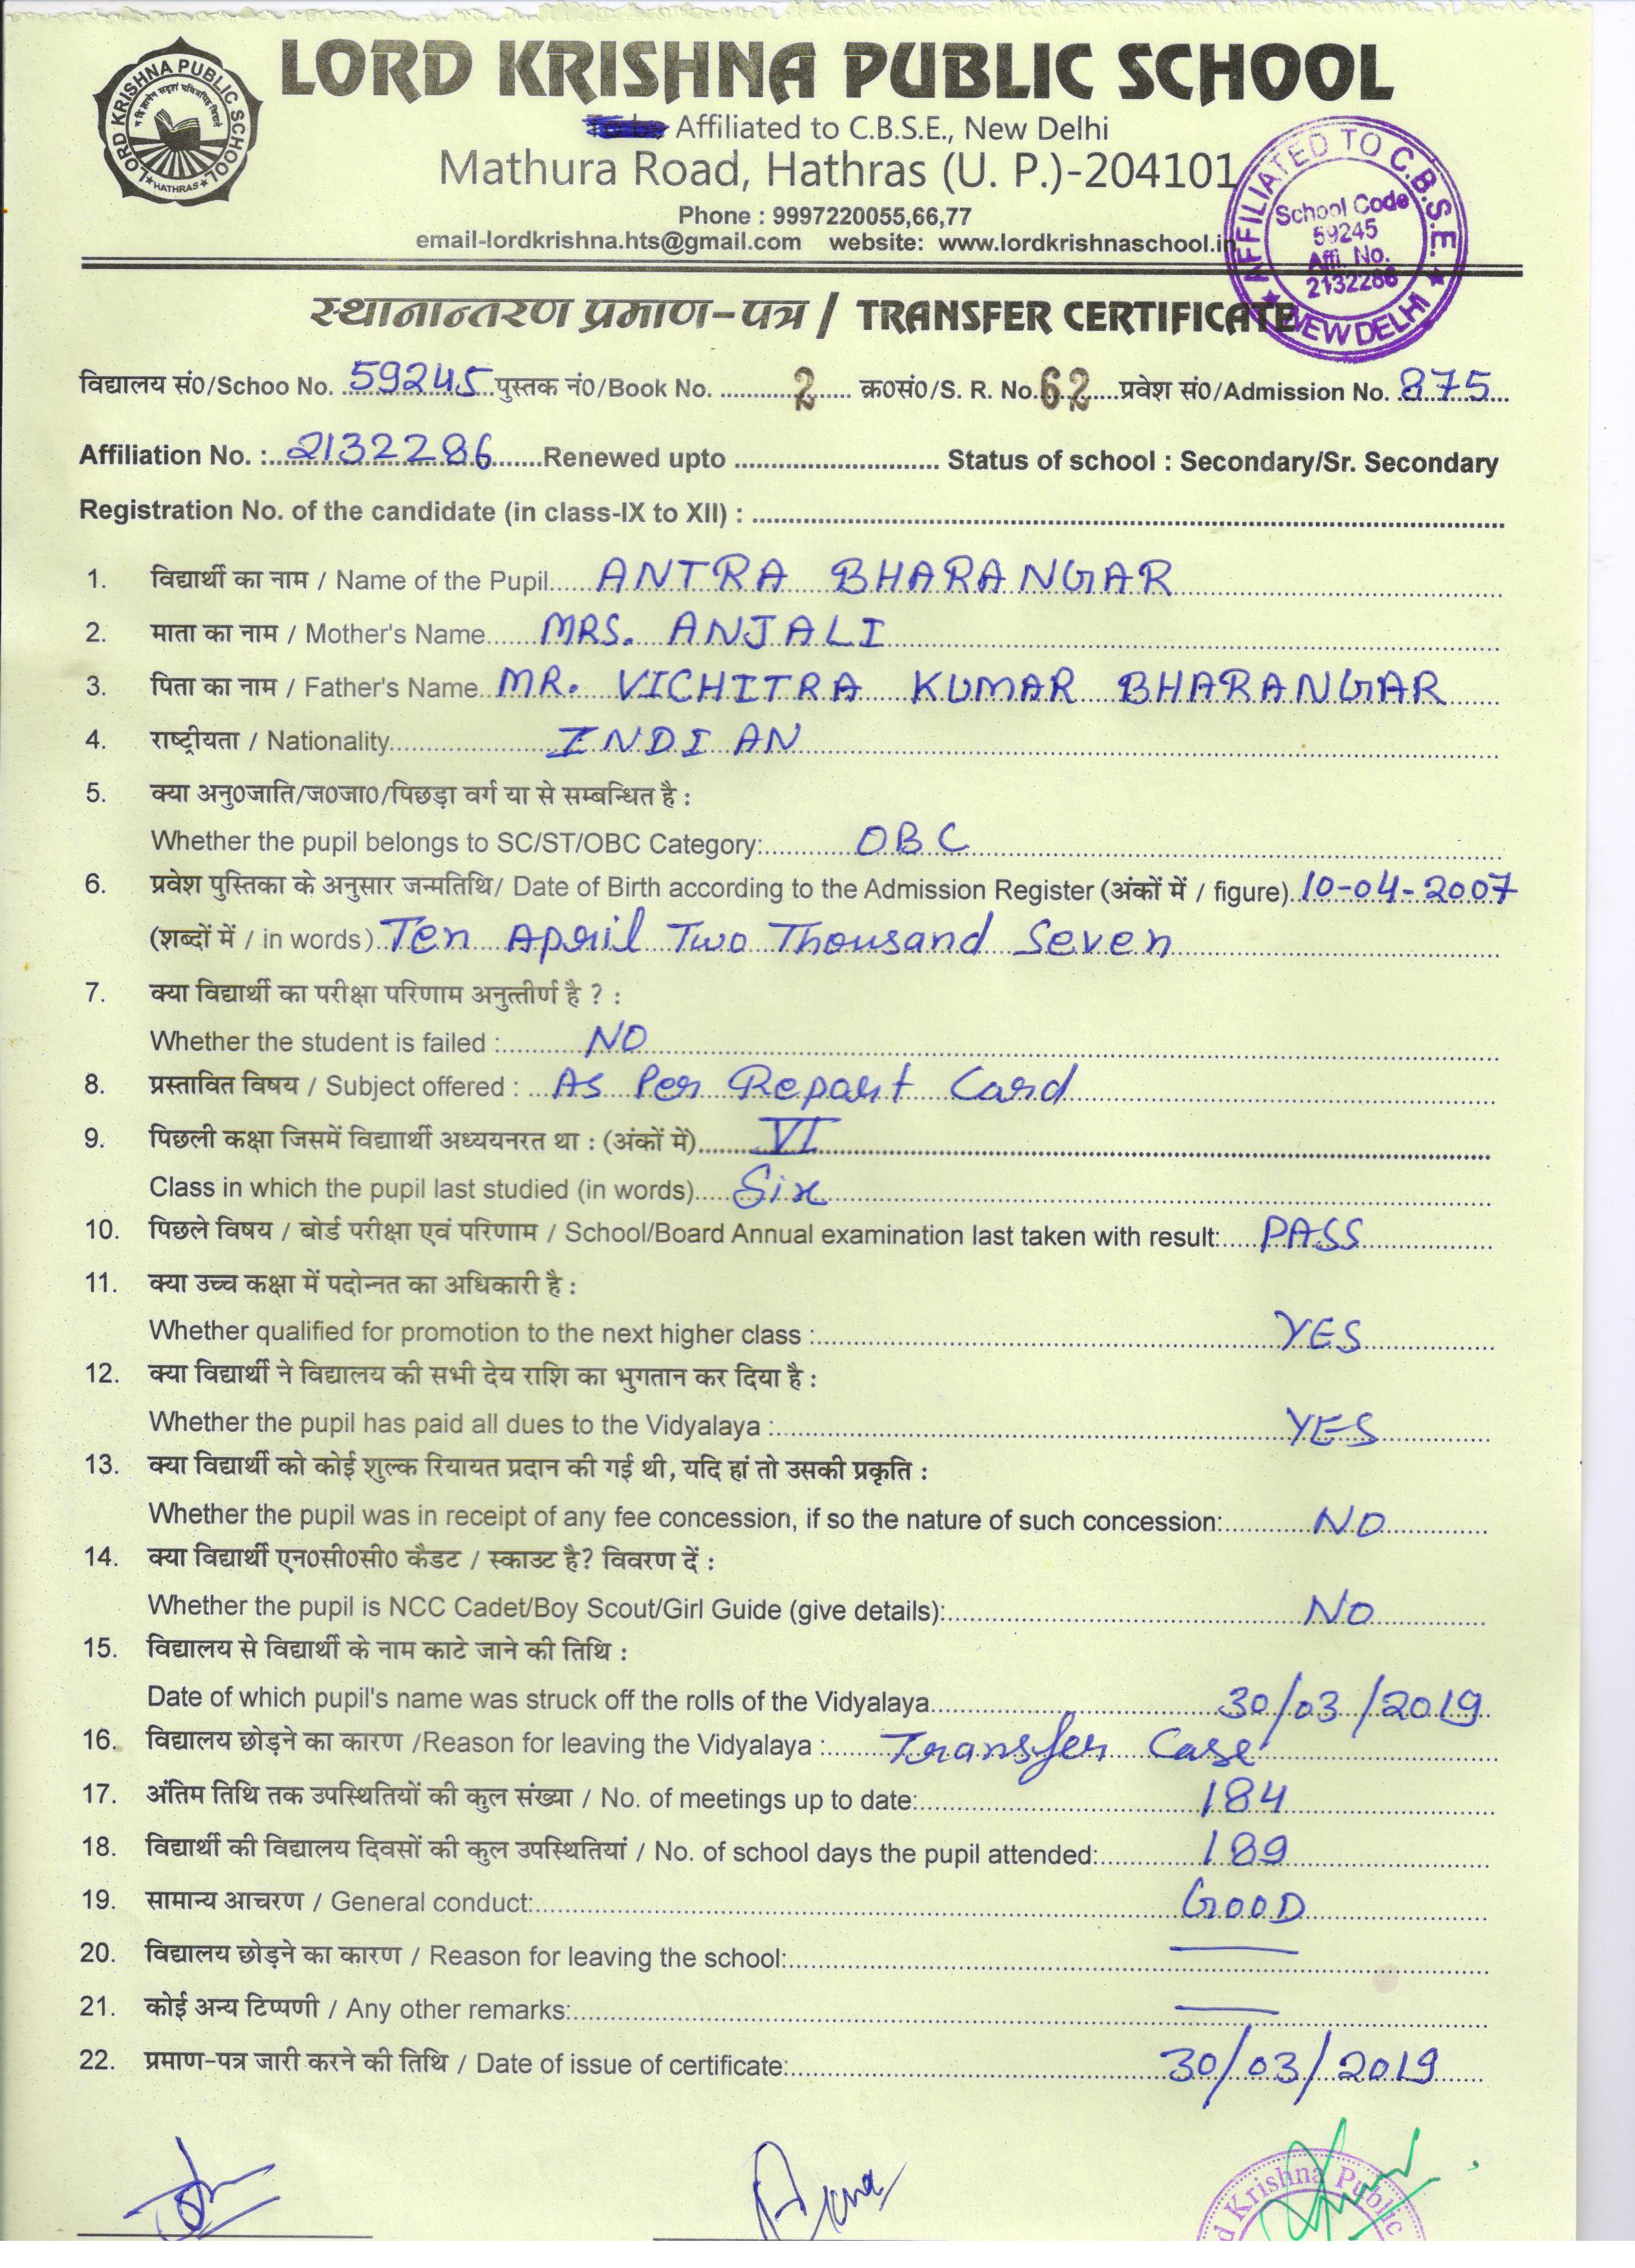 LORD KRISHNA PUBLIC SCHOOL
LORD KRISHNA PUBLIC SCHOOL
HATHRAS
Affiliated to C.B.S.E., New Delhi
Mathura Road, Hathras (U. P.)-204101
Phone : 9997220055,66,77
email-lordkrishna.hts@gmail.com website: www.lordkrishnaschool.in
AFFILIATED TO C.B.S.E.
School Code
59245
Affi. No.
2132286
NEW DELHI
स्थानान्तरण प्रमाण-पत्र / TRANSFER CERTIFICATE
विद्यालय सं0/Schoo No. 59245 पुस्तक नं0/Book No. 2 क्र0सं0/S. R. No. 62 प्रवेश सं0/Admission No. 875
Affiliation No. : 2132286 Renewed upto Status of school : Secondary/Sr. Secondary
Registration No. of the candidate (in class-IX to XII) :
1. विद्यार्थी का नाम / Name of the Pupil ANTRA BHARANGAR
2. माता का नाम / Mother's Name MRS. ANJALI
3. पिता का नाम / Father's Name MR. VICHITRA KUMAR BHARANGAR
4. राष्ट्रीयता / Nationality INDIAN
5. क्या अनु0जाति/ज0जा0/पिछड़ा वर्ग या से सम्बन्धित है :
Whether the pupil belongs to SC/ST/OBC Category: OBC
6. प्रवेश पुस्तिका के अनुसार जन्मतिथि/ Date of Birth according to the Admission Register (अंकों में / figure) 10-04-2007
(शब्दों में / in words) Ten April Two Thousand Seven
7. क्या विद्यार्थी का परीक्षा परिणाम अनुत्तीर्ण है ? :
Whether the student is failed : NO
8. प्रस्तावित विषय / Subject offered : As Per Report Card
9. पिछली कक्षा जिसमें विद्याार्थी अध्ययनरत था : (अंकों में) VI
Class in which the pupil last studied (in words) Six
10. पिछले विषय / बोर्ड परीक्षा एवं परिणाम / School/Board Annual examination last taken with result: PASS
11. क्या उच्च कक्षा में पदोन्नत का अधिकारी है :
Whether qualified for promotion to the next higher class : YES
12. क्या विद्यार्थी ने विद्यालय की सभी देय राशि का भुगतान कर दिया है :
Whether the pupil has paid all dues to the Vidyalaya : YES
13. क्या विद्यार्थी को कोई शुल्क रियायत प्रदान की गई थी, यदि हां तो उसकी प्रकृति :
Whether the pupil was in receipt of any fee concession, if so the nature of such concession: NO
14. क्या विद्यार्थी एन0सी0सी0 कैडट / स्काउट है? विवरण दें :
Whether the pupil is NCC Cadet/Boy Scout/Girl Guide (give details): NO
15. विद्यालय से विद्यार्थी के नाम काटे जाने की तिथि :
Date of which pupil's name was struck off the rolls of the Vidyalaya 30/03/2019
16. विद्यालय छोड़ने का कारण /Reason for leaving the Vidyalaya : Transfer Case
17. अंतिम तिथि तक उपस्थितियों की कुल संख्या / No. of meetings up to date: 184
18. विद्यार्थी की विद्यालय दिवसों की कुल उपस्थितियां / No. of school days the pupil attended: 189
19. सामान्य आचरण / General conduct: GOOD
20. विद्यालय छोड़ने का कारण / Reason for leaving the school:
21. कोई अन्य टिप्पणी / Any other remarks:
22. प्रमाण-पत्र जारी करने की तिथि / Date of issue of certificate: 30/03/2019
Krishna Public